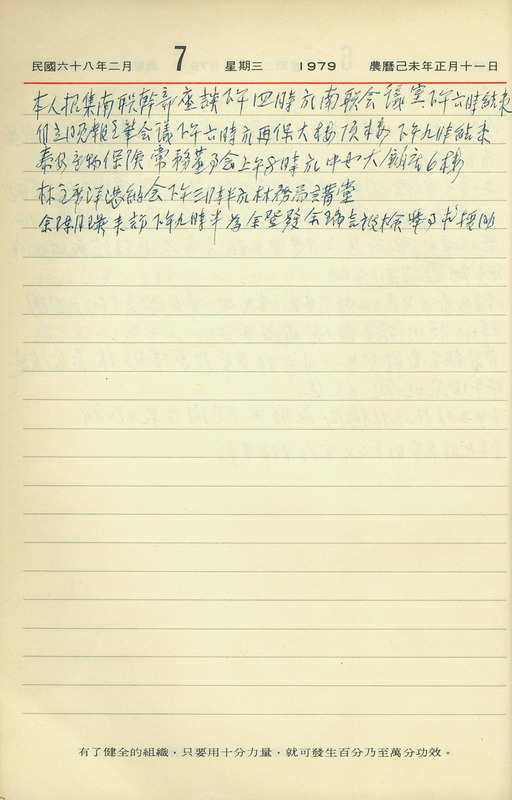 民國六十八年二月 7 星期三 1979 農曆己未年正月十一日
本人招集南联幹部座談下午四時於南联会議室下午六時結束
自立晚報 会議下午六時於再保大楼頂楼下午九時結束
泰 產物保險常務董事会上午 時於中 大飯店6楼
林 会下午三時半於林務局講堂
余陳月瑛来訪下午九時半為余登發余瑞言被檢舉
有了健全的組織，只要用十分力量，就可發生百分乃至萬分功效。